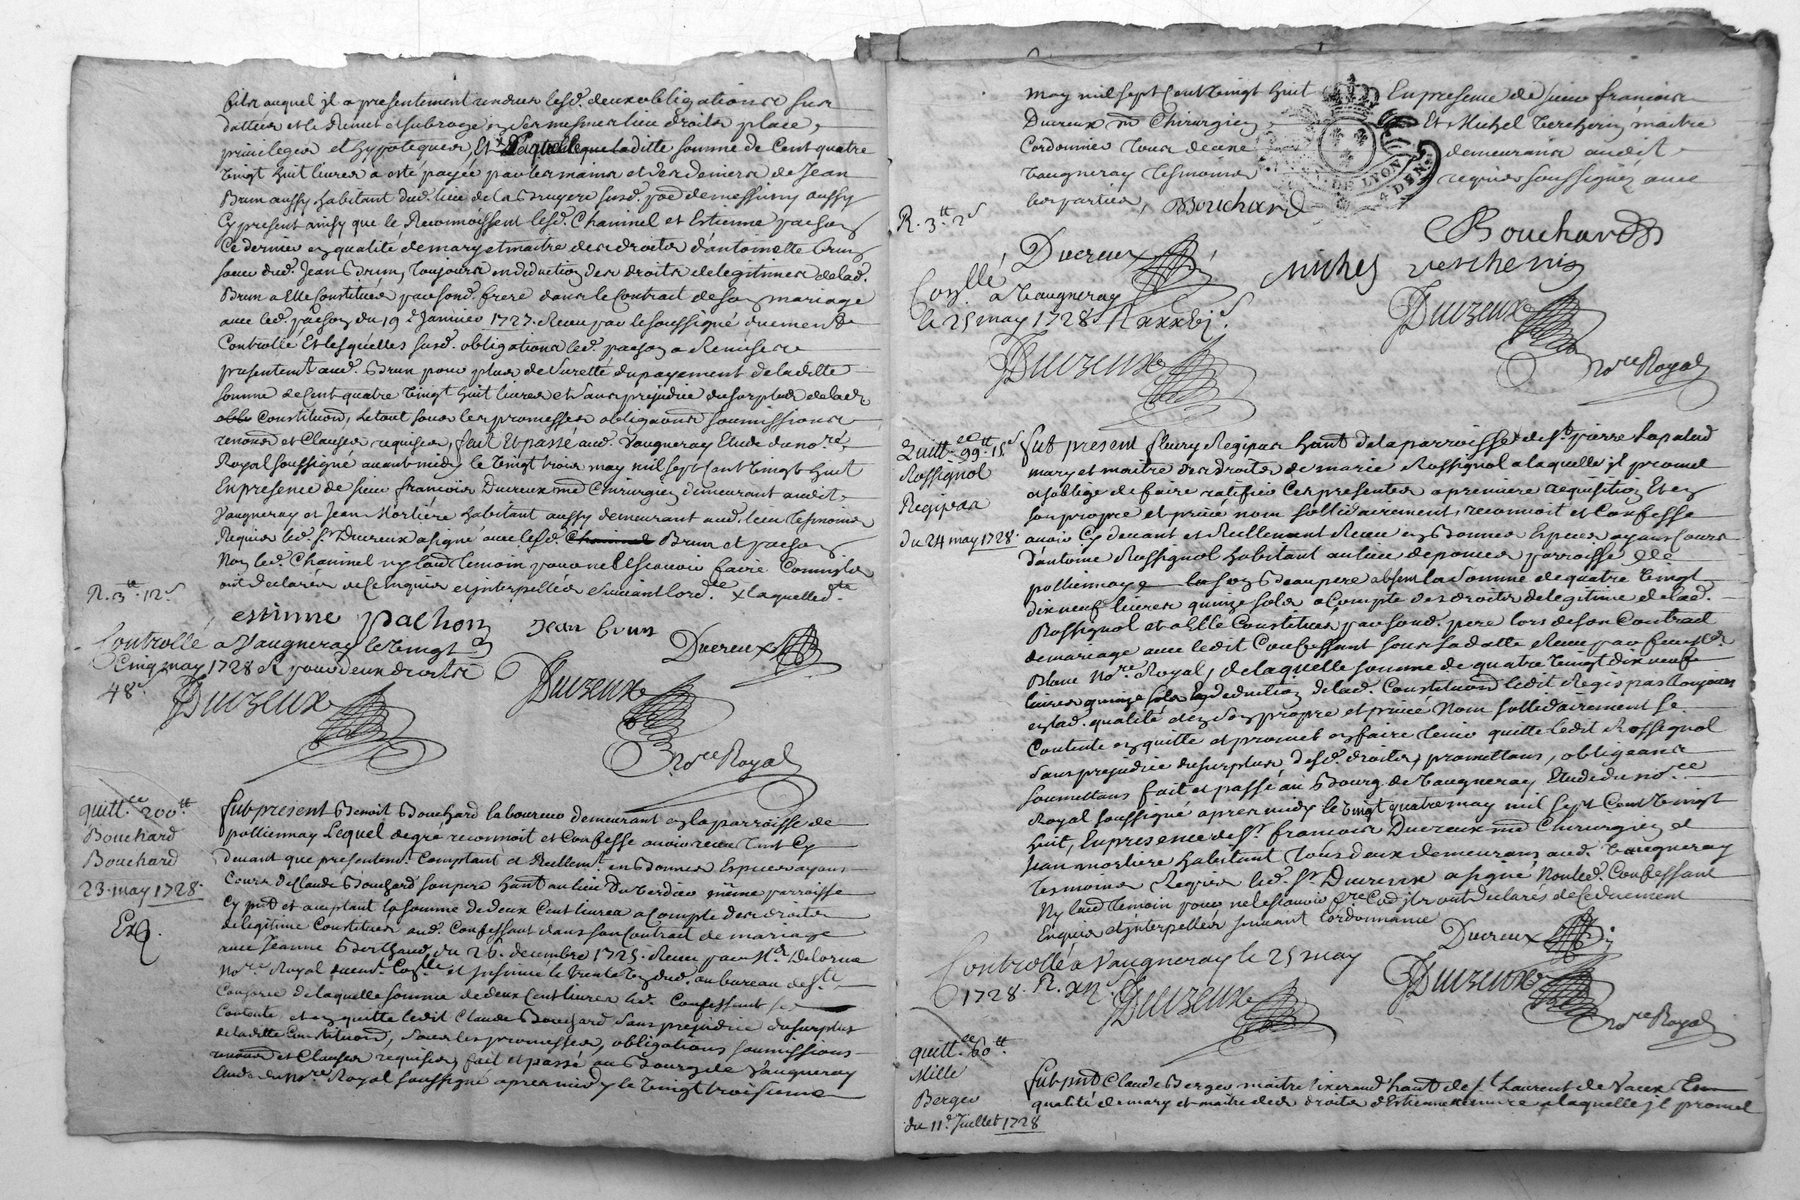 fils auquel jl a presentement rendues lesd. deux obligations sus
dattées et le Remet et subroge en ses mesmes lieu droits place,
privileges et hypoteques, Et laquelle ditte somme de Cent quatre
vingt huit livres a esté payée par les mains et des deniers de Jean
Brun aussy habitant dud. lieu de la Bruyere susd. pse de messimy aussy
Cy present ainsy que le Reconnoissent lesd. Chaninel et Estienne pachon
Ce dernier en qualité de mary et maitre des droits d'antoinette Brun
soeur dud. Jean Brun, toujours en deduction des droits de legitimes de lad.
Brun a Elle Constitués par sond. frere dans le Contrat de son mariage
avec led. pachon du 19e Janvier 1727. Receu par le soussigné duement
Controllé Et lesquelles susd. obligations led. pachon a Remises
presentemt aud. Brun pour plus de surette du payement de la ditte
somme de Cent quatre vingt huit livres et sans prejudice du surplus de lad.
Constituon, le tout sous les promesses obligaons soumissions
renonons et Clauses requises, fait Et passé aud. Vaugneray Etude du nore
Royal soussigné avant midy le vingt trois may mil sept Cent vingt huit
En presence de sieur francois Ducreux md Chirurgien demeurant audit
Vaugneray et Jean Mortiere habitant aussy demeurant aud. lieu tesmoins
Requis led. sr Ducreux a signé avec lesd. Brun et pachon
Non led. Chaninel ny laud. temoin pour ne le scavoir faire Comme ils
ont declarés de ce enquis et interpellés suivant lord.ce x laquelle d.te
R. 3tt 12s
estienne pachon
Jean brun
Ducreux
Controllé a Vaugneray le vingt
Cinq may 1728 R pour deux droits
48s
Duizeux
Duizeux
Nore Royal
quitt.ce 200tt
Bouchard
Bouchard
23. may 1728.
Exp.
fut present Benoit Bouchard laboureur demeurant en la parroisse de
polliennay Lequel de gré reconnoit et Confesse avoir receu tant Cy
devant que presentemt Comptant et Reellemt en Bonnes Especes ayans
Cours de Claude Bouchard son pere habt au lieu du verdier même parroisse
Cy pnt et acceptant la somme de deux Cent livres a Compte des droits
de legitime Constitués aud. Confessant dans son Contrat de mariage
avec Jeanne Berthaud du 26. decembre 1725. Receu par Me Delorme
Nore Royal duemt Conllé et Insinué le trente dud. au bureau de St
de laquelle somme de deux Cent livres led. Confessant se
Contente et en quitte ledit Claude Bouchard sans prejudice du surplus
de la ditte Constituon, sous les promesses, obligations soumissions
renonons et Clauses requises, fait et passé au Bourg de Vaugneray
Etude du nore Royal soussigné apres midy le vingt troisieme
may mil sept Cent vingt huit En presence de sieur francois
Ducreux md Chirurgien Et Michel verchery maitre
Cordonnier tous deux demeurans audit
Vaugneray tesmoins requis soussignéz avec
les parties,
DE LYON
4 DEN
R. 3tt 2s
Bouchard
Bouchard
Ducreux
michel verchery
Conllé a Vaugneray
le 25 may 1728 R xxxvjs
Duizeux
Duizeux
Nore Royal
Quitt.ce 99tt 15s
Rossignol
Regipas
du 24 may 1728.
fut present fleury Regipas habt de la parroisse de St pierre lapalud
mary et maitre des droits de marie Rossignol a laquelle jl promet
et s'oblige de faire ratifier Ces presentes a premiere requisition Et en
son propre et privé nom sollidairement, reconnoit et Confesse
avoir Cy devant et Reellement Receu en Bonnes Especes ayans Cours
d'antoine Rossignol habitant au lieu de parroisse de
polliennay son Beaupere absent la somme de quatre vingt
dix neuf livres quinze sols a Compte des droits de legitime de lad.
Rossignol et a Elle Constitués par sond. pere lors de son Contrat
de mariage avec ledit Confessant sous sa datte Receu par feu Me
Blanc Nore Royal, de laquelle somme de quatre vingt dix neuf
livres quinze sols En deduction de lad. Constituon ledit Regipas toujours
en lad. qualité et en son propre et privé Nom sollidairement se
Contente en quitte et promet en faire tenir quitte ledit Rossignol
sans prejudice du surplus desd. droits, promettans, obligeans
soumettans fait et passé au Bourg de Vaugneray Etude du nore
Royal soussigné apres midy le vingt quatre may mil sept Cent vingt
huit, En presence de sr francois Ducreux md Chirurgien et
Jean mortiere habitant tous deux demeurans aud. Vaugneray
tesmoins Requis led. sr Ducreux a signé Non led. Confessant
Ny laud. temoin pour ne le scavoir fre Co. jls ont declarés de Ce duement
Enquis et jnterpellés suivant lordonnance
Ducreux
Controllé a Vaugneray le 25 may
1728. R. xijs
Duizeux
Duizeux
Nore Royal
quitt.ce 60tt
Mille
Berger
du 11e Juillet 1728
fut pnt Claude Berger maitre tixerand habt de St Laurent de Vaux En
qualité de mary et maitre des droits d'Estiennette mure a laquelle jl promet